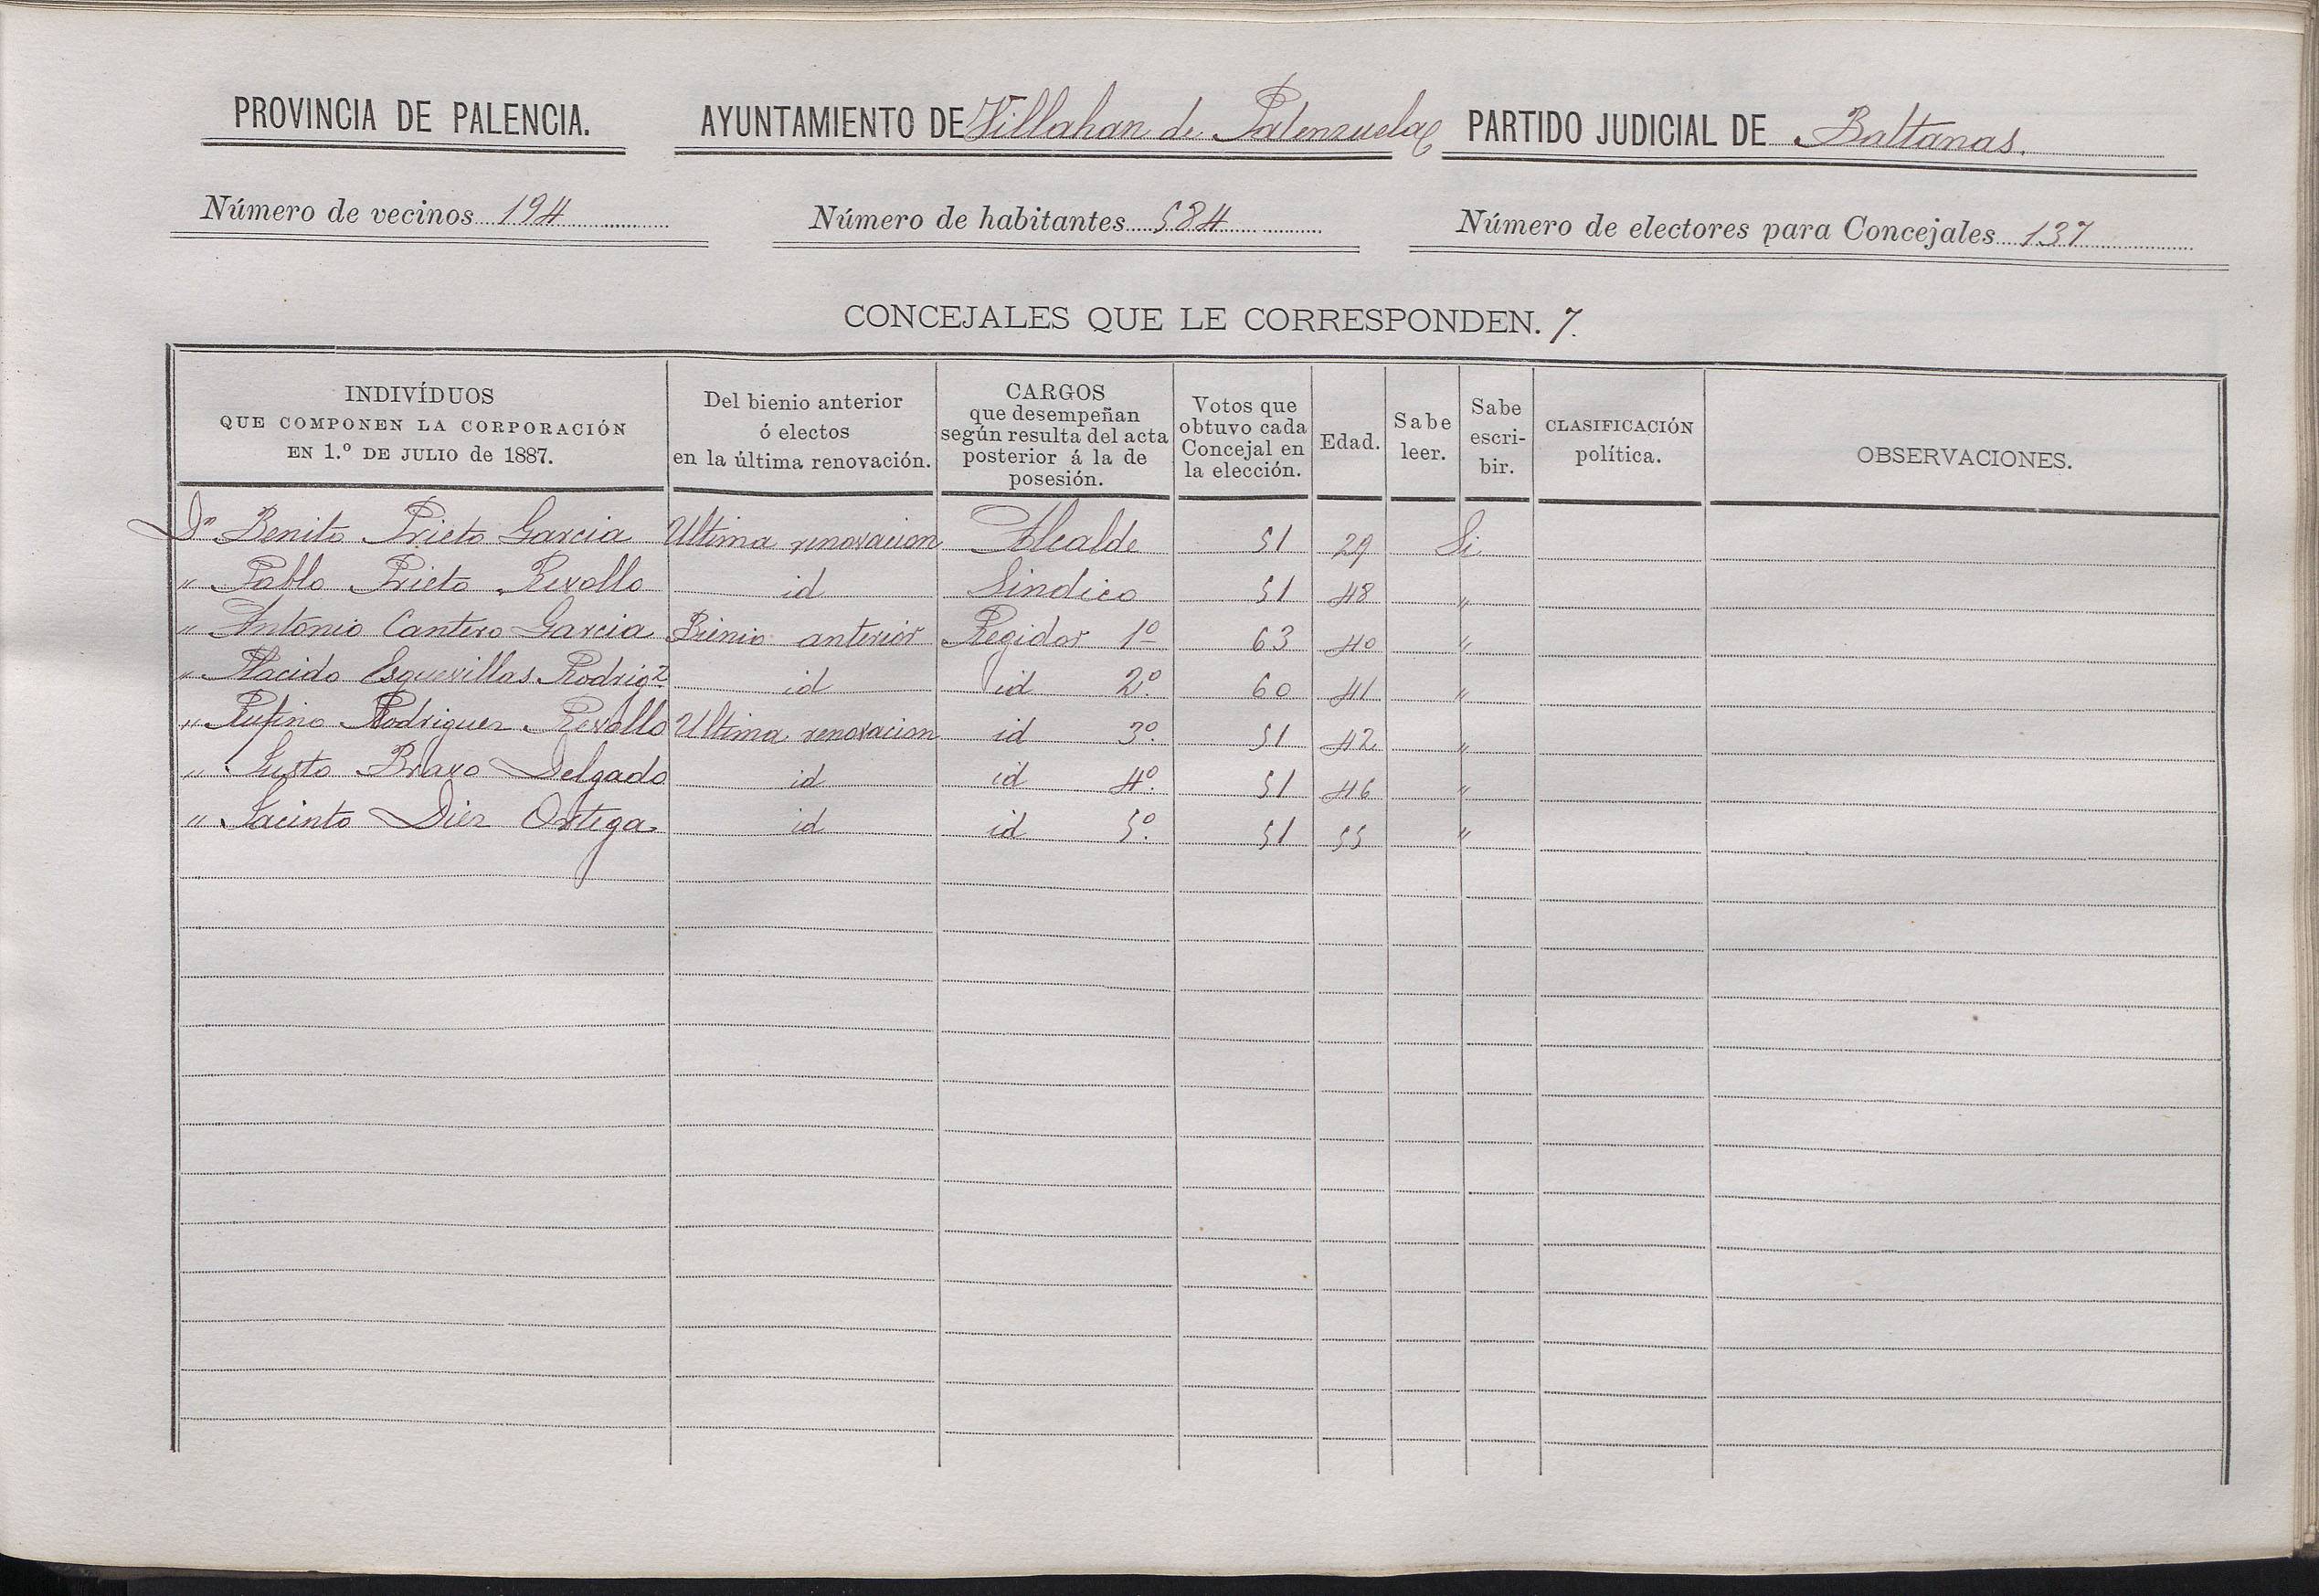 PROVINCIA DE PALENCIA. AYUNTAMIENTO DE Villahan de Palenzuela PARTIDO JUDICIAL DE Baltanas.
Número de vecinos 194 Número de habitantes 584 Número de electores para Concejales 137
CONCEJALES QUE LE CORRESPONDEN. 7.
INDIVÍDUOS QUE COMPONEN LA CORPORACIÓN EN 1.º DE JULIO de 1887. Del bienio anterior ó electos en la última renovación. CARGOS que desempeñan según resulta del acta posterior á la de posesión. Votos que obtuvo cada Concejal en la elección. Edad. Sabe leer. Sabe escri-bir. CLASIFICACIÓN política. OBSERVACIONES.
Dn Benito Prieto Garcia Ultima renovacion Alcalde 51 29 Si
" Pablo Prieto Revollo id Sindico 51 48 "
" Antonio Cantero Garcia Bienio anterior Regidor 1º 63 40 "
" Placido Esguevillas Rodrigz id id 2º. 60 41 "
" Rufino Rodriguez Revollo Ultima renovacion id 3º. 51 42 "
" Justo Bravo Delgado id id 4º. 51 46 "
" Jacinto Diez Ortega id id 5º. 51 55 "